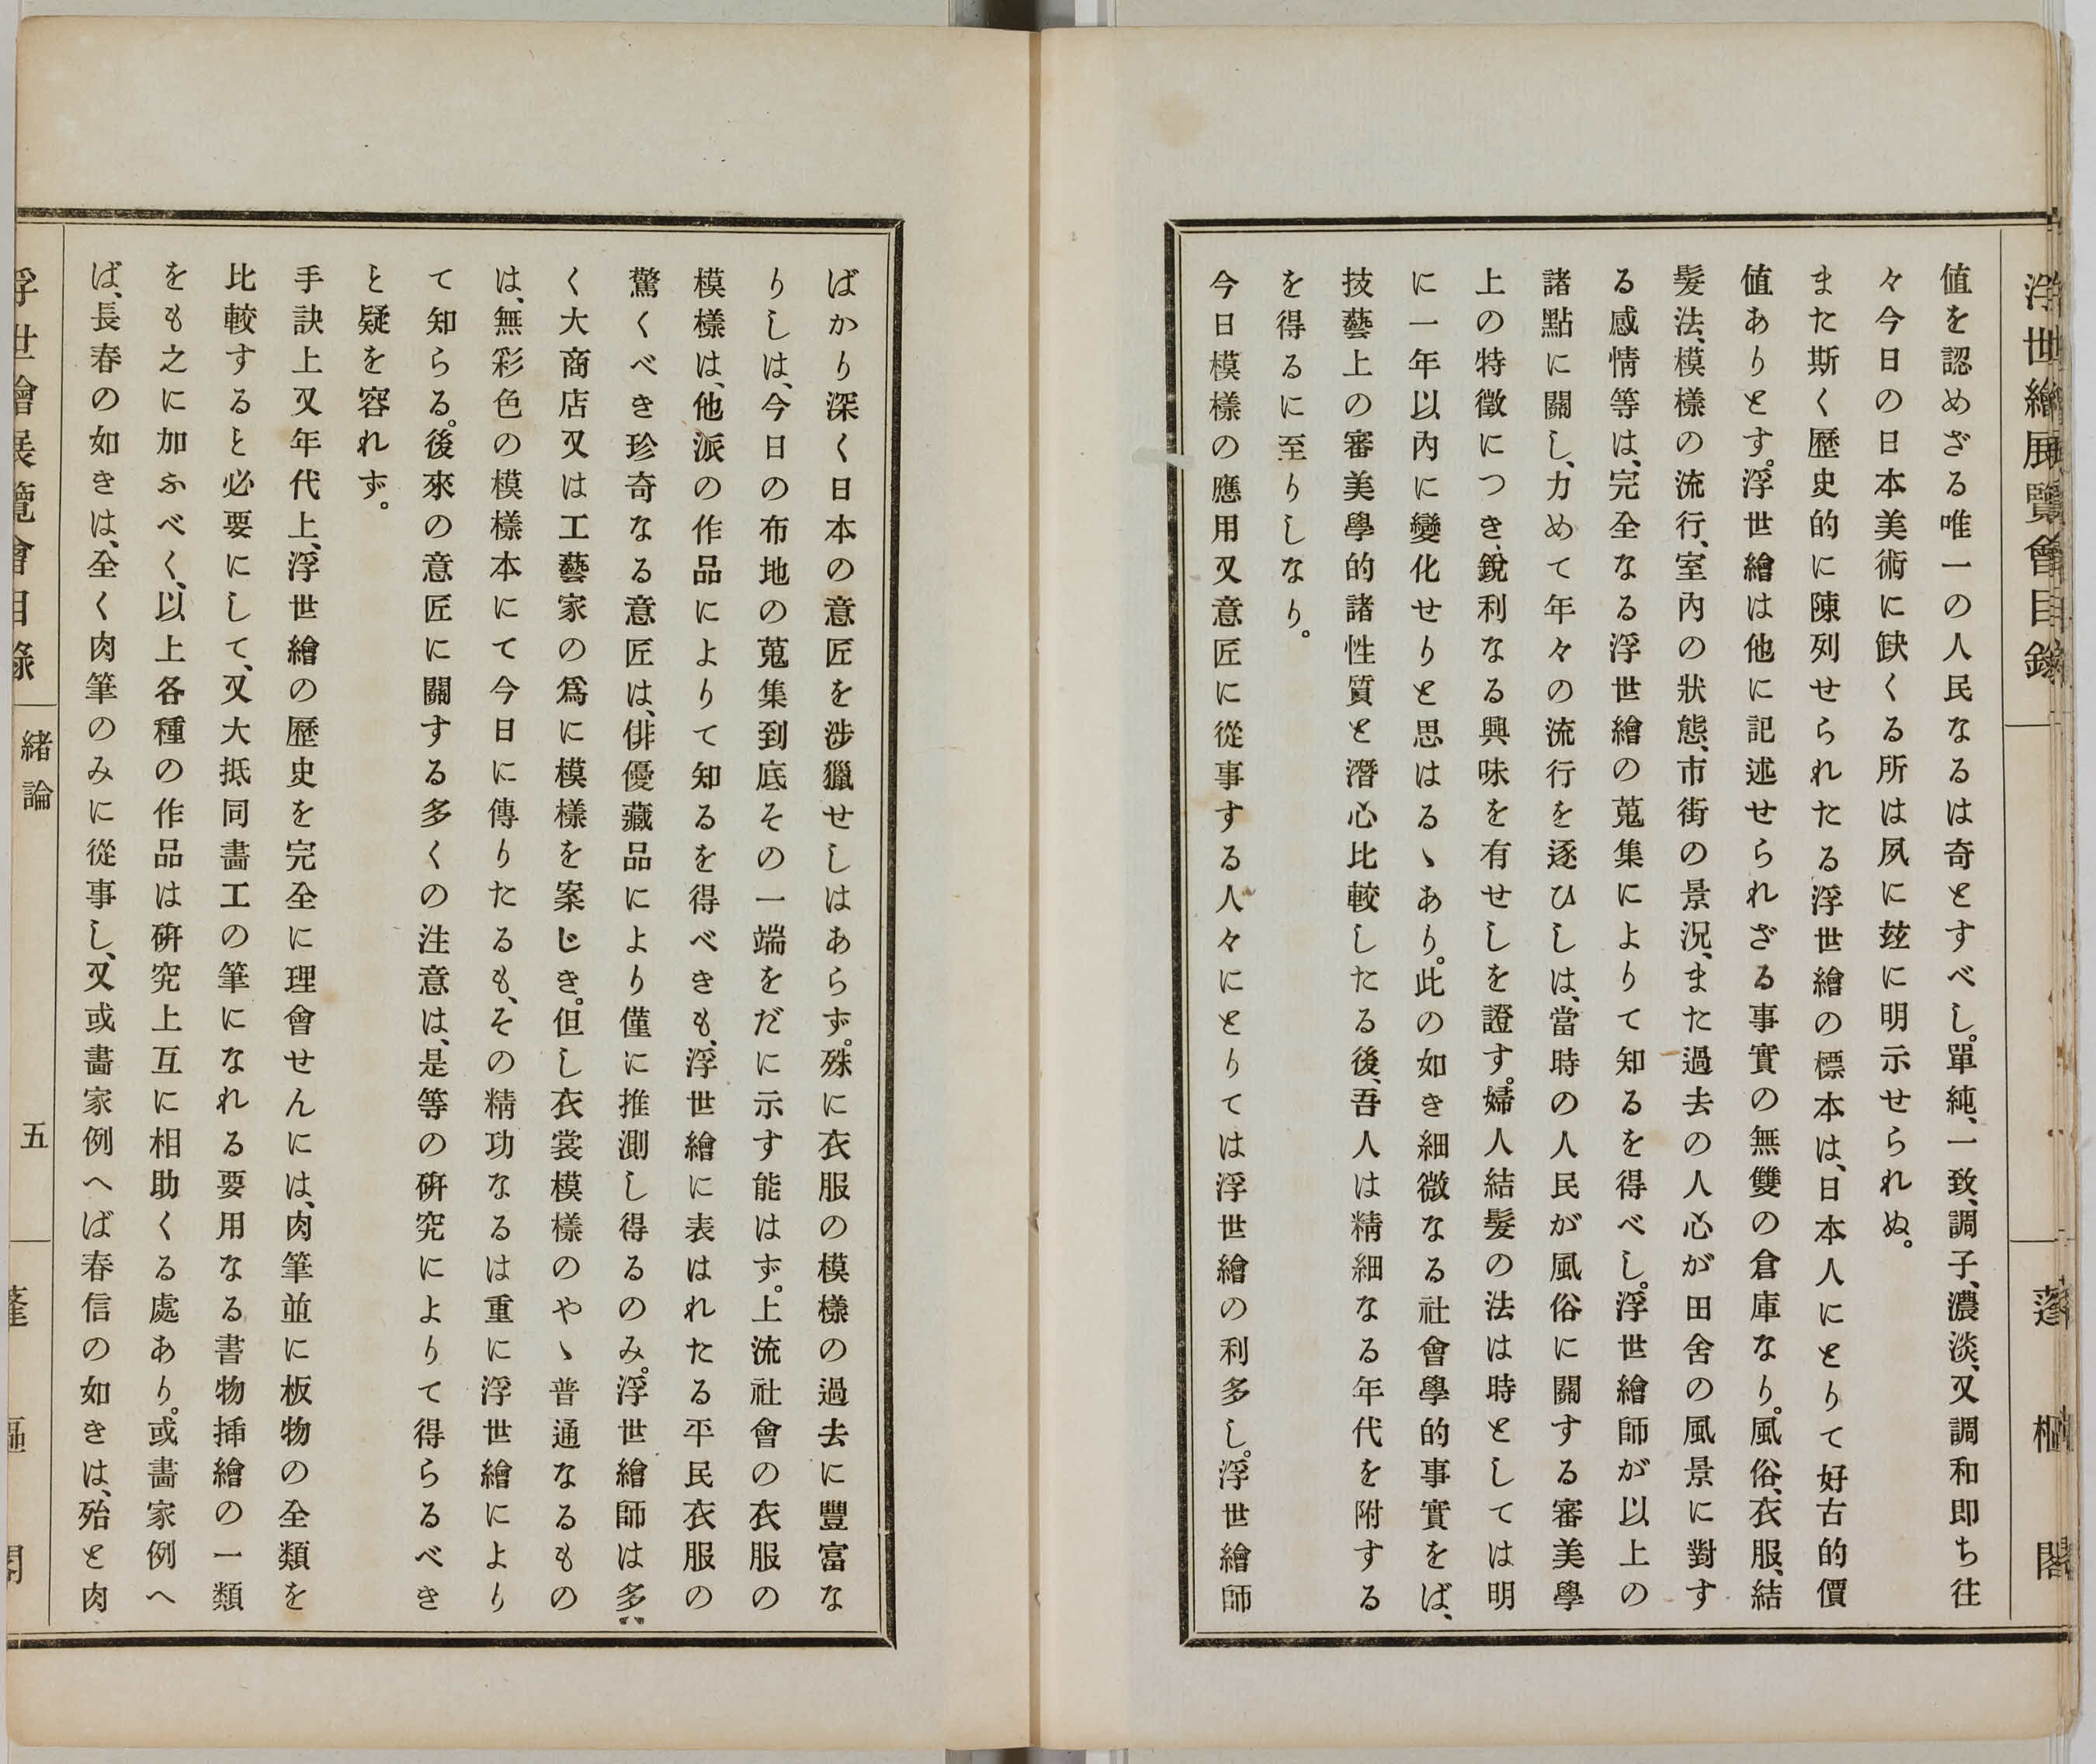 浮世繪展覽會目錄
蓬樞閣
値を認めざる唯一の人民なるは奇とすべし。單純、一致、調子、濃淡、又調和即ち往
々今日の日本美術に缺くる所は夙に玆に明示せられぬ。
また斯く歷史的に陳列せられたる浮世繪の標本は、日本人にとりて好古的價
値ありとす。浮世繪は他に記述せられざる事實の無雙の倉庫なり。風俗、衣服、結
髮法、模樣の流行、室內の狀態、市街の景況、また過去の人心が田舍の風景に對す
る感情等は、完全なる浮世繪の蒐集によりて知るを得べし。浮世繪師が以上の
諸點に關し、力めて年々の流行を逐ひしは、當時の人民が風俗に關する審美學
上の特徵につき、銳利なる興味を有せしを證す。婦人結髮の法は時としては明
に一年以內に變化せりと思はるゝあり。此の如き細微なる社會學的事實をば、
技藝上の審美學的諸性質と潛心比較したる後、吾人は精細なる年代を附する
を得るに至りしなり。
今日模樣の應用又意匠に從事する人々にとりては浮世繪の利多し。浮世繪師
ばかり深く日本の意匠を涉獵せしはあらず。殊に衣服の模樣の過去に豐富な
りしは、今日の布地の蒐集到底その一端をだに示す能はず。上流社會の衣服の
模樣は、他派の作品によりて知るを得べきも、浮世繪に表はれたる平民衣服の
驚くべき珍奇なる意匠は、俳優藏品により僅に推測し得るのみ。浮世繪師は多
く大商店又は工藝家の爲に模樣を案じき。但し衣裳模樣のやゝ普通なるもの
は、無彩色の模樣本にて今日に傳りたるも、その精功なるは重に浮世繪により
て知らる。後來の意匠に關する多くの注意は、是等の硏究によりて得らるべき
と疑を容れず。
手訣上又年代上、浮世繪の歷史を完全に理會せんには、肉筆並に板物の全類を
比較すると必要にして、又大抵同畵工の筆になれる要用なる書物挿繪の一類
をも之に加ふべく、以上各種の作品は硏究上互に相助くる處あり。或畵家例へ
ば、長春の如きは、全く肉筆のみに從事し、又或畵家例へば春信の如きは、殆と肉
浮世繪展覽會目錄
緖論
五
蓬樞閣